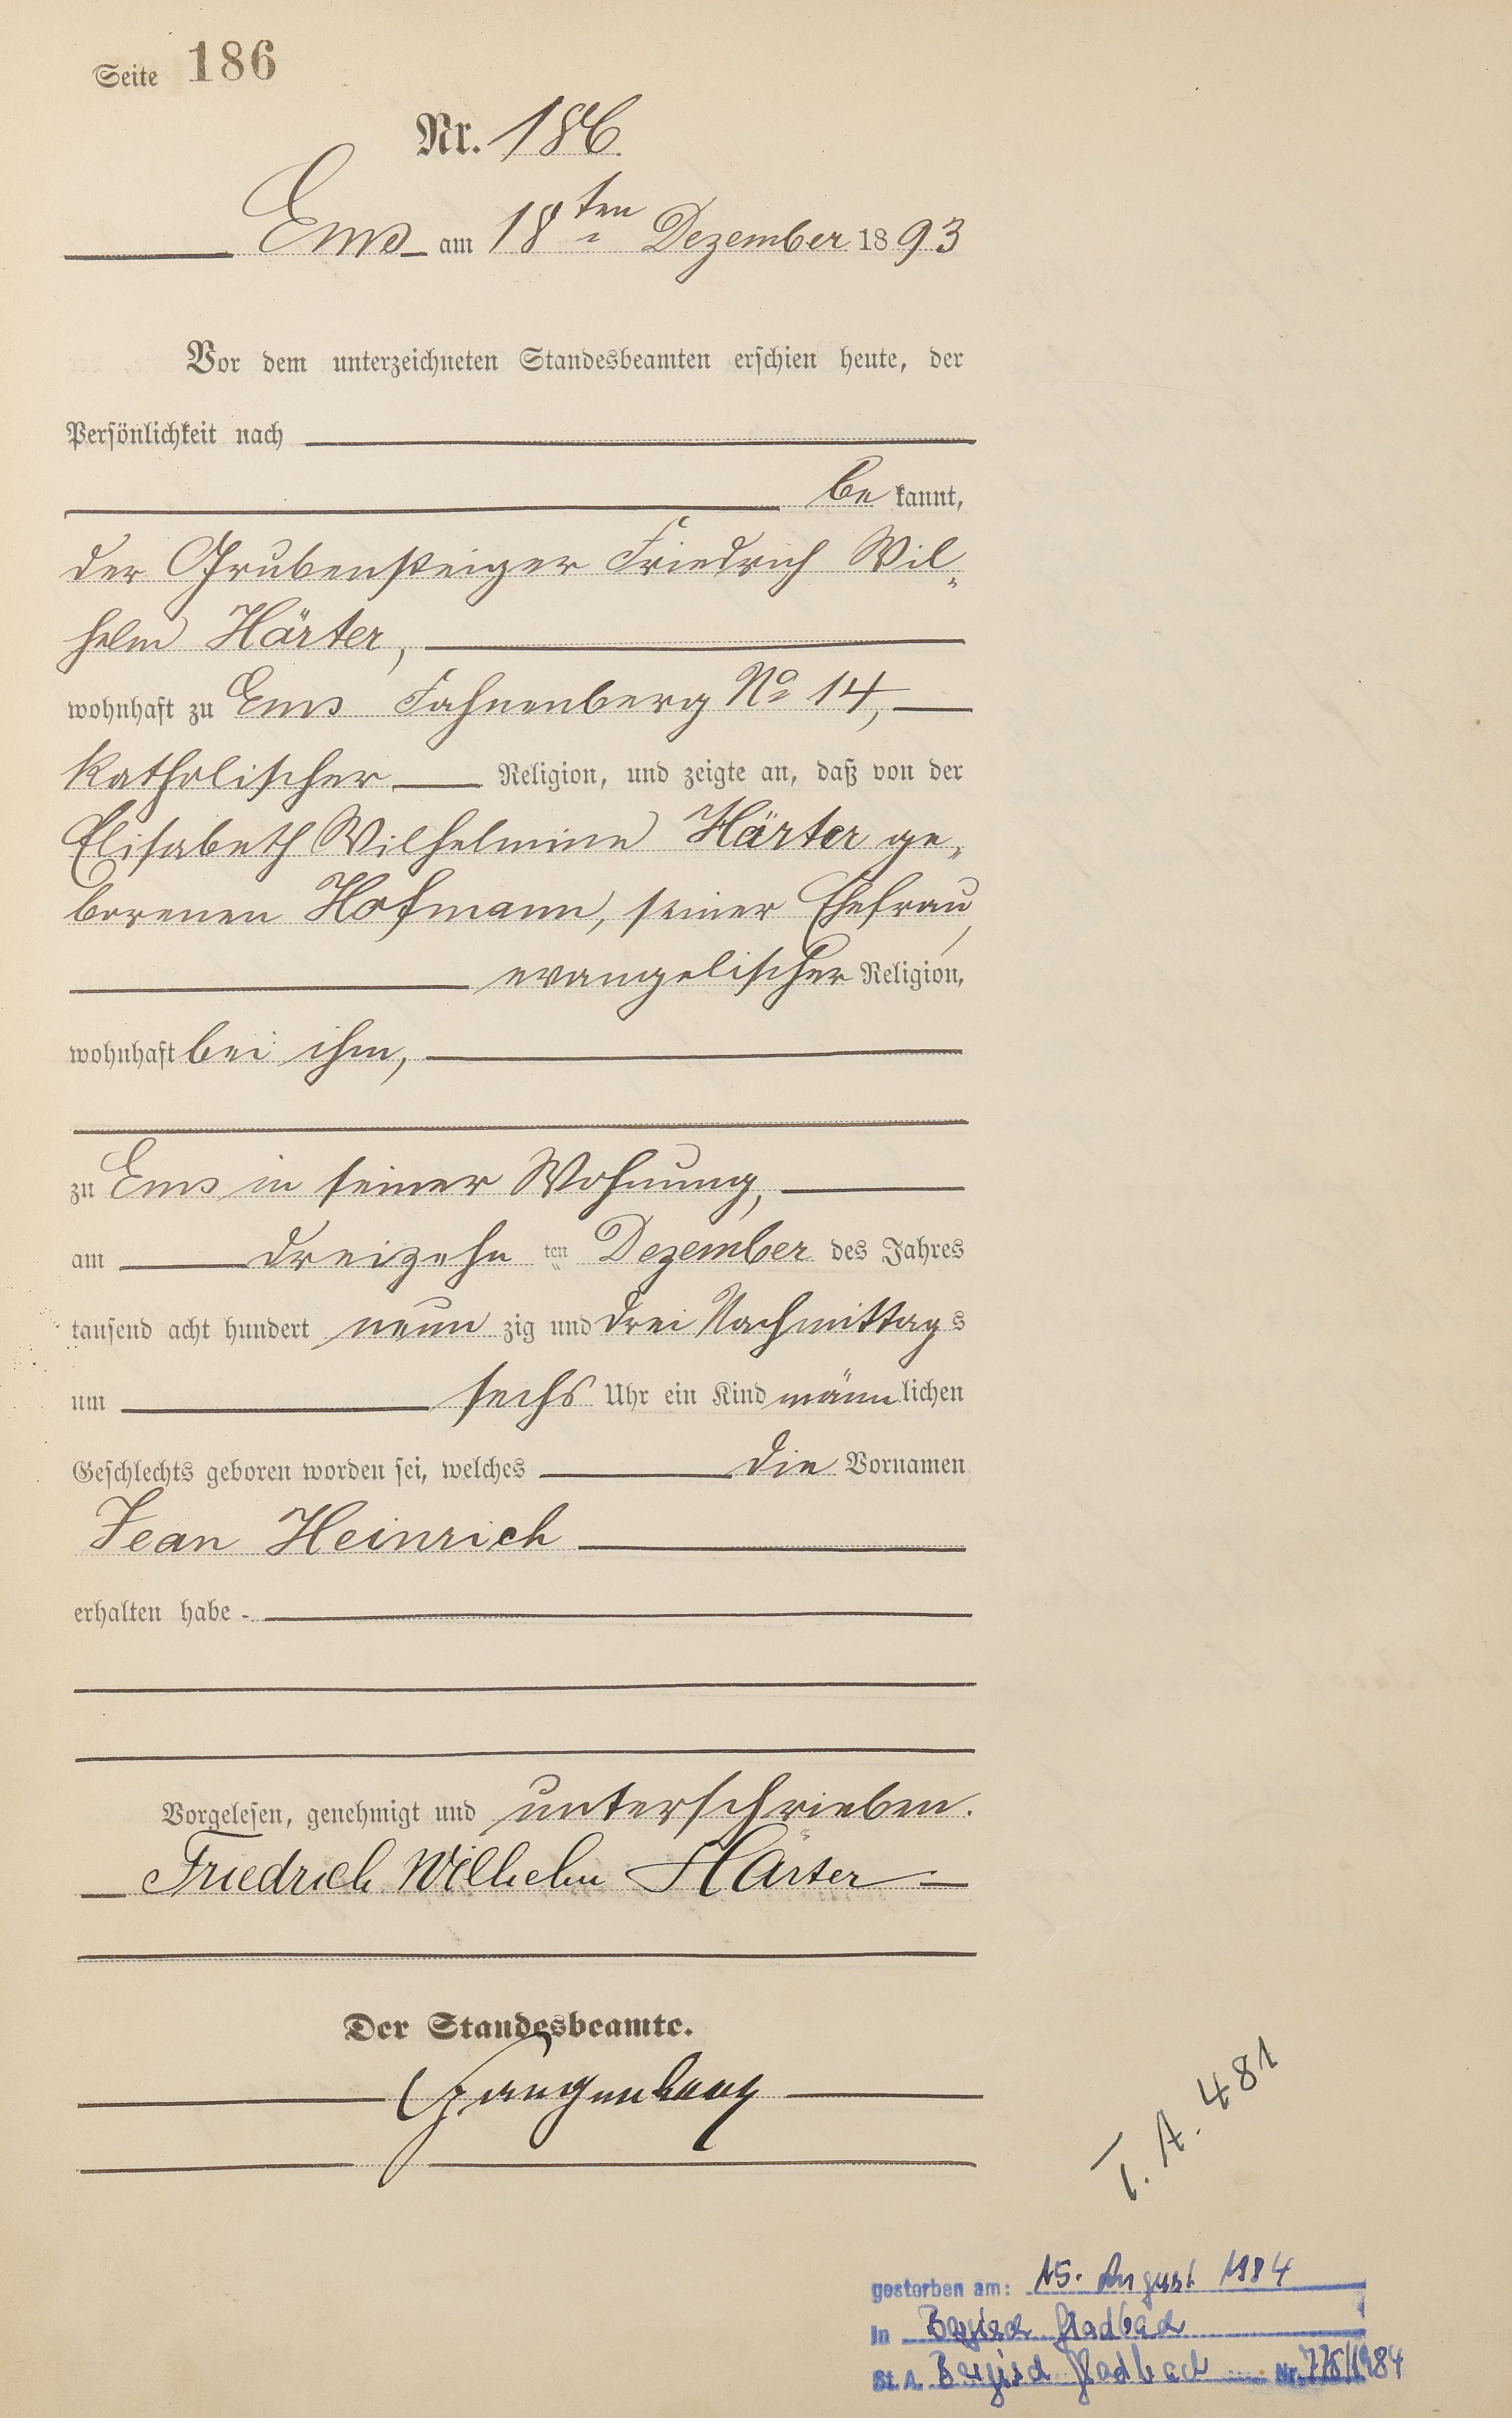 Seite 186
Nr. 186.
Ems am 18ten Dezember 1893
Vor dem unterzeichneten Standesbeamten erschien heute, der
Persönlichkeit nach
be kannt,
der Grubensteiger Friedrich Wil„
helm Härter,
wohnhaft zu Ems Fahnenberg No 14,
katholischer Religion, und zeigte an, daß von der
Elisabeth Wilhelmine Härter ge„
borenen Hofmann, seiner Ehefrau,
evangelischer Religion,
wohnhaft bei ihm,
zu Ems in seiner Wohnung,
am dreizehn ten Dezember des Jahres
tausend acht hundert neun zig und drei Nachmittags
um sechs Uhr ein Kind männlichen
Geschlechts geboren worden sei, welches die Vornamen
Jean Heinrich
erhalten habe.
Vorgelesen, genehmigt und unterschrieben.
Friedrich Wilhelm Härter
Der Standesbeamte.
T. A. 481
gestorben am: 15. August 1984
In Bergisch Gladbach
St. A. Bergisch Gladbach Nr. /1984